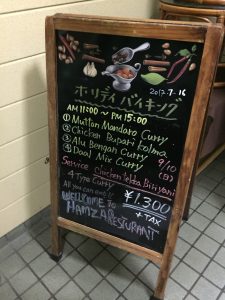 2017.7-16
ホリデイ バイキング
AM 11:00 ~ PM 15:00
① Mutton Mandaro Curry
② Chicken Bupari kolma
③ Alu Bengan Curry
④ Daal Mix Curry
9/10
(日)
Service Chicken tekka Biriyani
4 Type Curry
All you can eat
¥1.300
+ TAX
WELLCOME TO
HAMZA RESTURANT